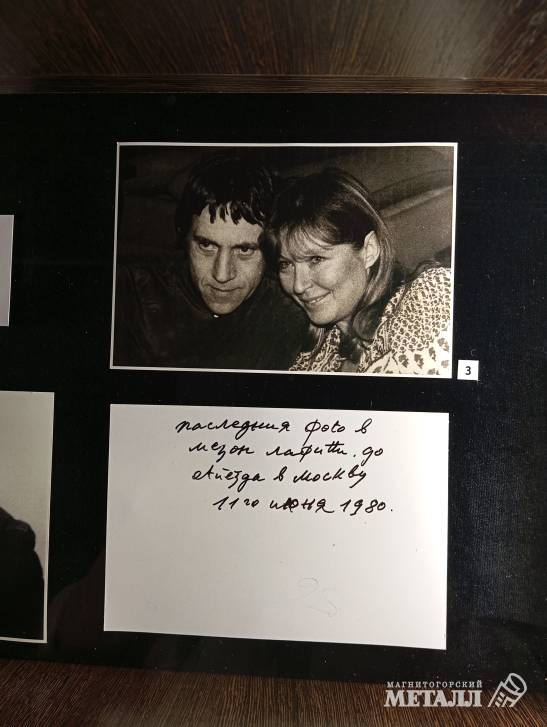 3
последния фото в
мезон лафитт. до
отьезда в москву
11го июня 1980.
МАГНИТОГОРСКИЙ
МЕТАЛЛ